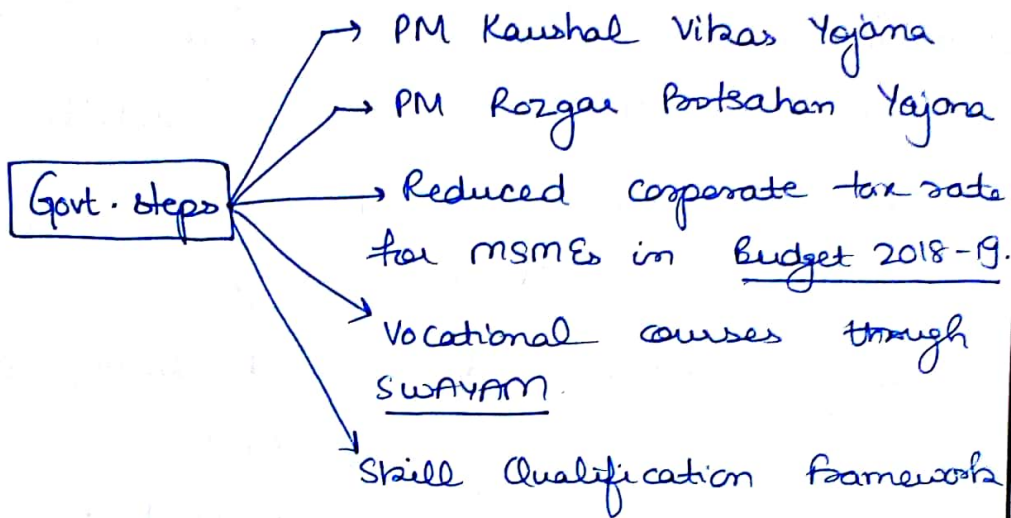 PM Kaushal Vikas Yojana
PM Rozgar Protsahan Yojana
Govt. steps
Reduced corporate tax rate
for MSMEs in Budget 2018-19.
Vocational courses through
SWAYAM.
Skill Qualification Framework